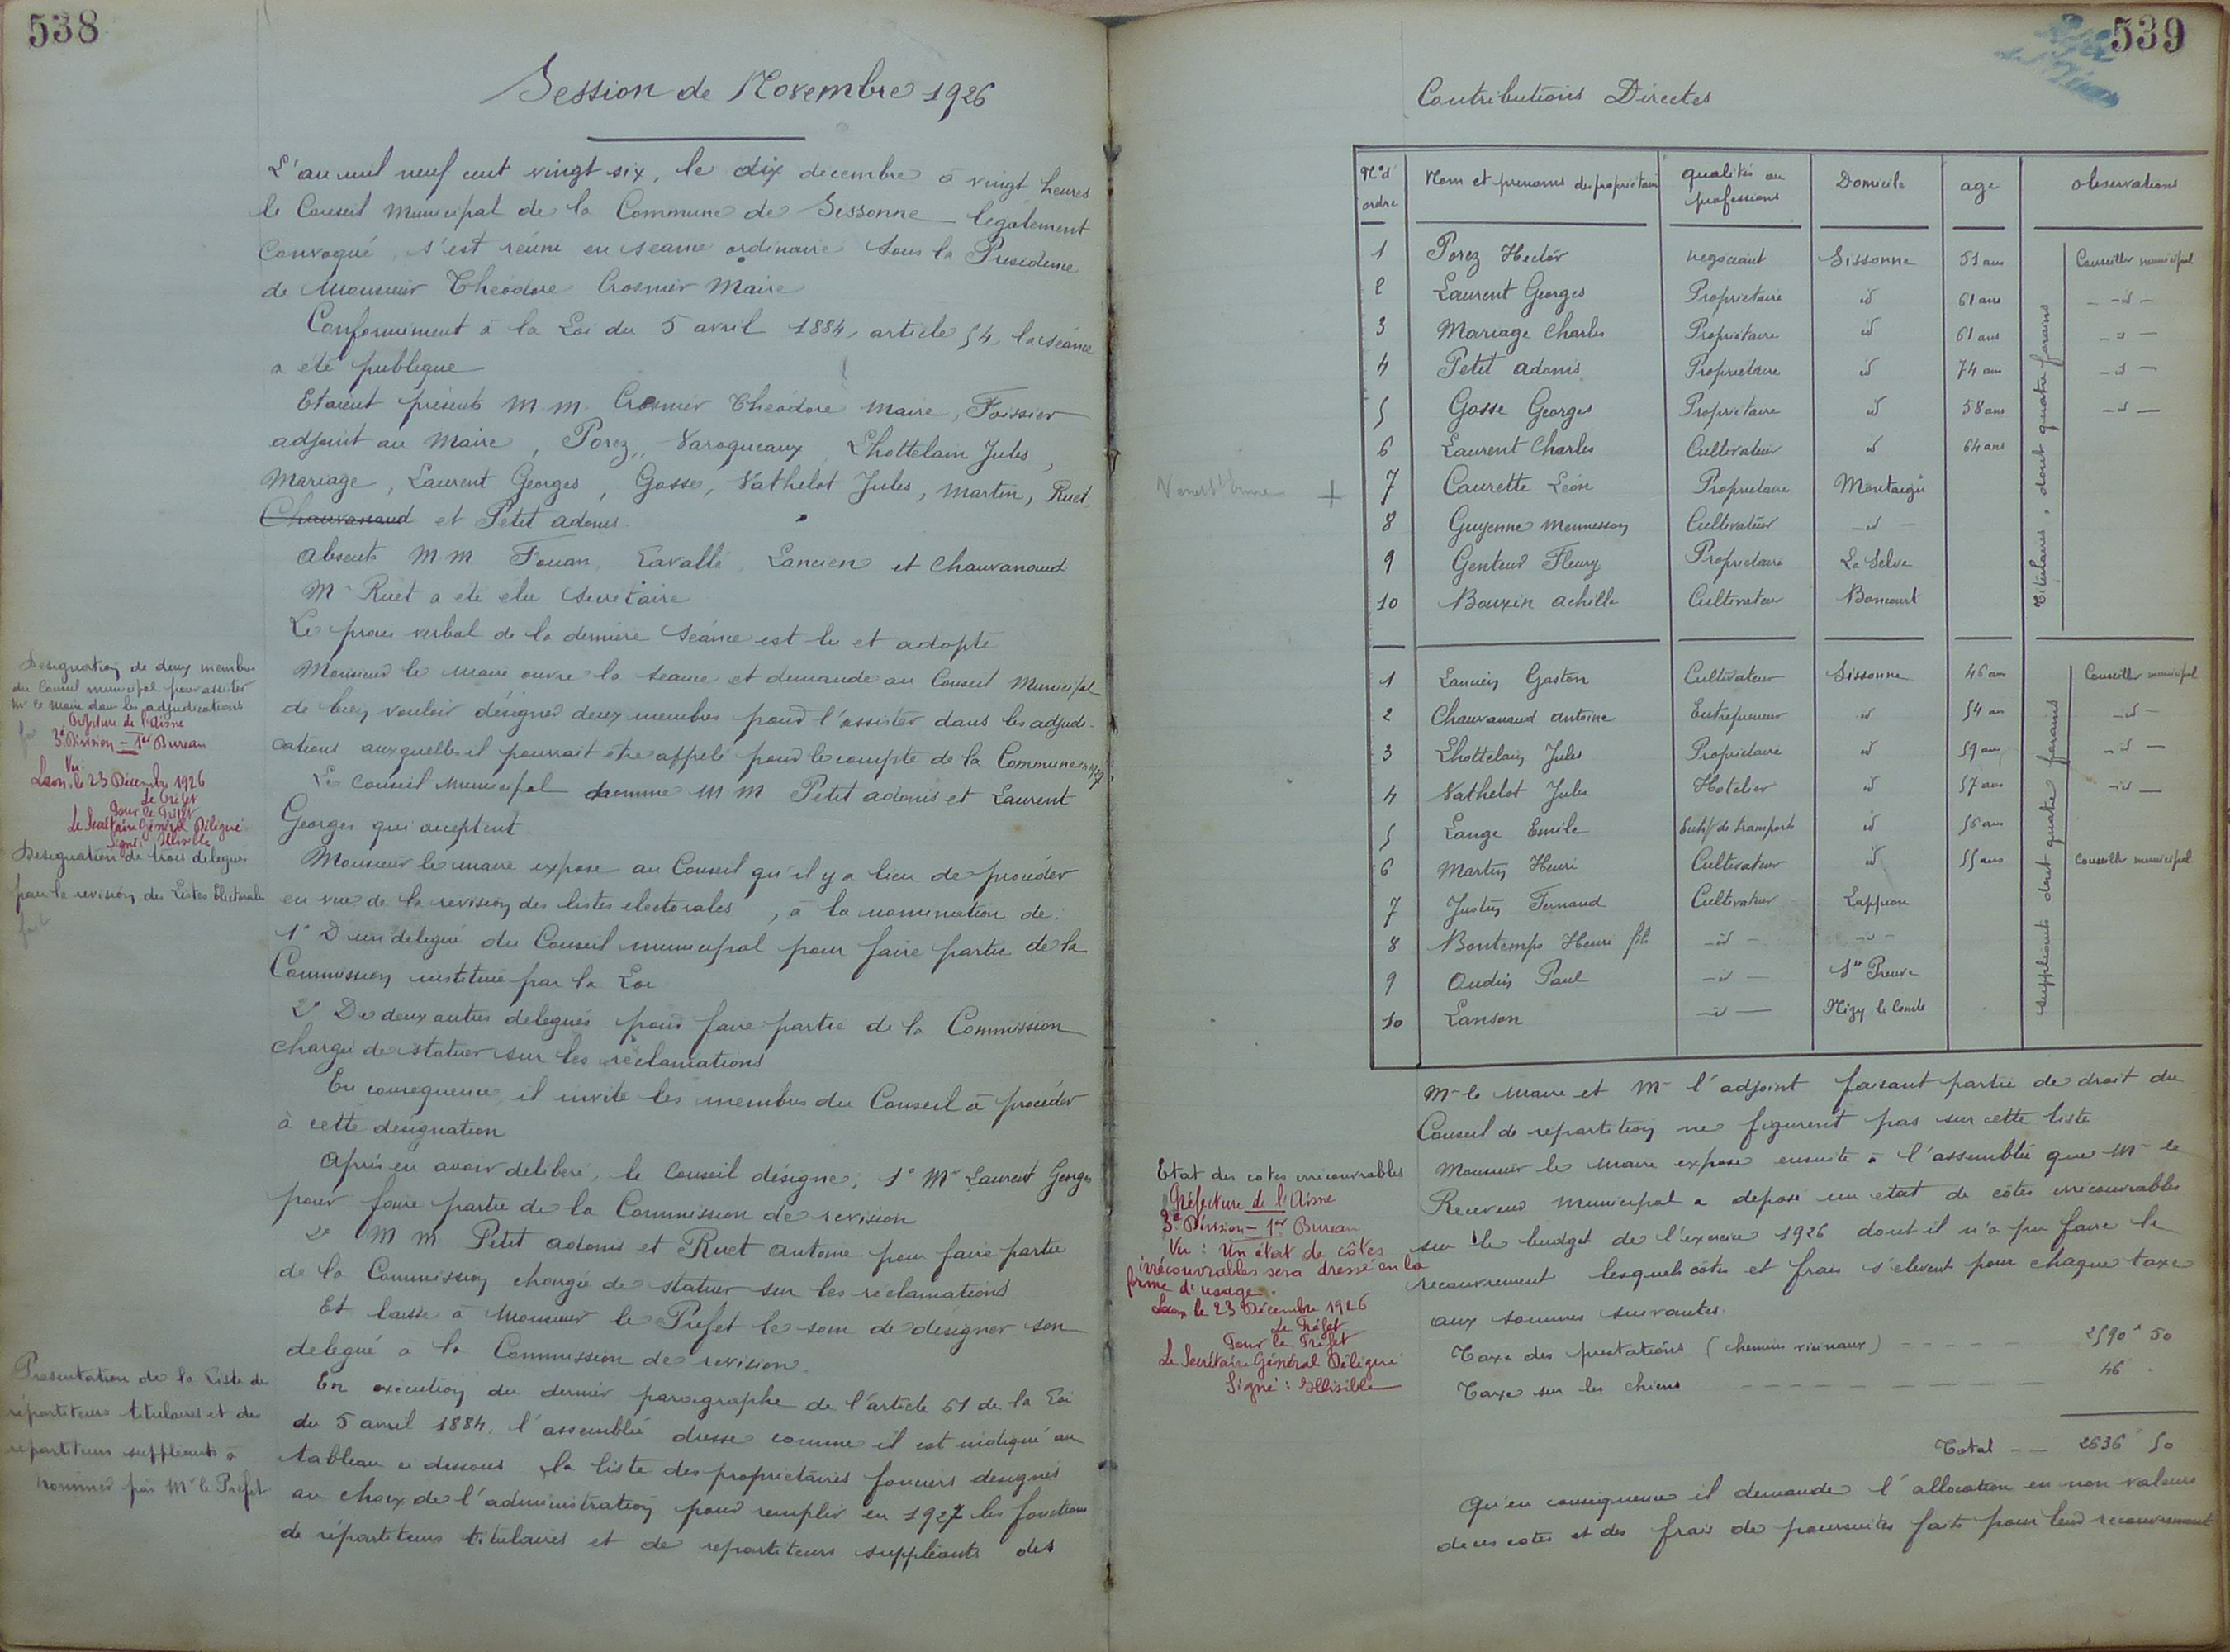 538
Session de Novembre 1926
L'an mil neuf cent vingt six, le dix decembre à vingt heures
le Conseil Municipal de la Commune de Sissonne légalement
convoqué, s'est réuni en seance ordinaire sous la Presidence
de Monsieur Théodore Crosnier Maire
Conformement à la Loi du 5 avril 1884, article 54, la séance
a été publique
Etaient présents M.M. Crosnier Théodore Maire, Foissier
adjoint au Maire, Porez, Varoqueaux, Lhottelain Jules,
Mariage, Laurent Georges, Gosse, Vathelot Jules, Martin, Ruet,
Chauvanaud et Petit adonis.
absents M M Fouan, Lavallé, Lancien et Chauvanaud
Mr Ruet a été élu Secrétaire
Le proces verbal de la derniere Séance est lu et adopté
Designation de deux membres
du Conseil municipal pour assister
Mr le Maire dans les adjudications
Préfecture de l'Aisne
3e Division - 1er Bureau
Vu:
Laon, le 23 Décembre 1926
Le Préfet
Pour le Préfet
Le Secrétaire Général Délégué
Signé: Illisible
Monsieur le Maire ouvre la seance et demande au Conseil Municipal
de bien vouloir désigner deux membres pour l'assister dans les adjudi-
cations auxquelles il pourrait être appelé pour le compte de la Commune en 1927
Le Conseil Municipal nomme M M Petit adonis et Laurent
Georges qui acceptent
Designation de trois délégués
pour la revision des Listes Electorales
fait
Monsieur le maire expose au Conseil qu'il y a lieu de procéder
en vue de la revision des listes electorales, à la nomination de:
1° D'un délégué du Conseil municipal pour faire partie de la
Commission instituée par la Loi
2° De deux autres délegués pour faire partie de la Commission
chargée de statuer sur les réclamations
En consequence, il invite les membres du Conseil à procéder
à cette designation
après en avoir deliberé, le Conseil désigne, 1° Mr Laurent Georges
pour faire partie de la Commission de revision
2° M M Petit adonis et Ruet antoine pour faire partie
de la Commission chargée de statuer sur les réclamations
Et laisse à Monsieur le Prefet le soin de designer son
delegué à la Commission de revision.
Presentation de la Liste de
répartiteurs titulaires et de
répartiteurs suppléants à
nommer par Mr le Prefet
En execution du dernier paragraphe de l'article 61 de la Loi
du 5 avril 1884, l'assemblée dresse comme il est indiqué au
tableau ci dessous la liste des proprietaires fonciers designés
au choix de l'administration pour remplir en 1927 les fonctions
de répartiteurs titulaires et de repartiteurs suppléants des
539
Contributions Directes
N° d'ordre Nom et prenoms des propriétaires qualités ou professions Domicile age observations
Titulaires, dont quatre forains
1 Porez Hector negociant Sissonne 51 ans Conseiller municipal
2 Laurent Georges Proprietaire id 61 ans - id -
3 Mariage Charles Proprietaire id 61 ans - id -
4 Petit adonis Proprietaire id 74 ans - id -
5 Gosse Georges Proprietaire id 58 ans - id -
6 Laurent Charles Cultivateur id 64 ans
+ 7 Caurette Léon Proprietaire Montaigu
8 Guyenne Mennesson Cultivateur - id -
9 Genteur Fleury Proprietaire La Selve
10 Bouxin achille Cultivateur Boncourt
suppléants dont quatre forains
1 Lancien Gaston Cultivateur Sissonne 46 ans Conseiller municipal
2 Chauvanaud antoine Entrepreneur id 54 ans - id -
3 Lhottelain Jules Proprietaire id 59 ans - id -
4 Vathelot Jules Hotelier id 57 ans - id -
5 Lange Emile de transports id 56 ans
6 Martin Henri Cultivateur id 55 ans Conseiller municipal
7 Justin Fernand Cultivateur Lappion
8 Bontemps Henri fils - id - - id -
9 Oudin Paul - id - Ste Preuve
10 Lanson - id - Nizy le Comte
Mr le Maire et Mr l'adjoint faisant partie de droit du
Conseil de repartition ne figurent pas sur cette liste
Etat des cotes irrecouvrables
Préfecture de l'Aisne
3e Division - 1er Bureau
Vu: Un état de côtes
irrécouvrables sera dressé en la
forme d'usage.
Laon le 23 Décembre 1926
Le Préfet
Pour le Préfet
Le Secrétaire Général Délégué
Signé: Illisible
Monsieur le Maire expose ensuite à l'assemblée que Mr le
Receveur Municipal a deposé un etat de côtes irrecouvrables
sur le budget de l'exercice 1926 dont il n'a pu faire le
recouvrement lesquels côtes et frais s'elevent pour chaque taxe
aux sommes suivantes.
Taxe des prestations (chemins vicinaux) - - - - - 2590f 50
Taxe sur les chiens - - - - - - - - - 46 -
Total - - 2636 50
Qu'en consequence il demande l'allocation en non valeurs
de ces cotes et des frais de poursuites faits pour leur recouvrement